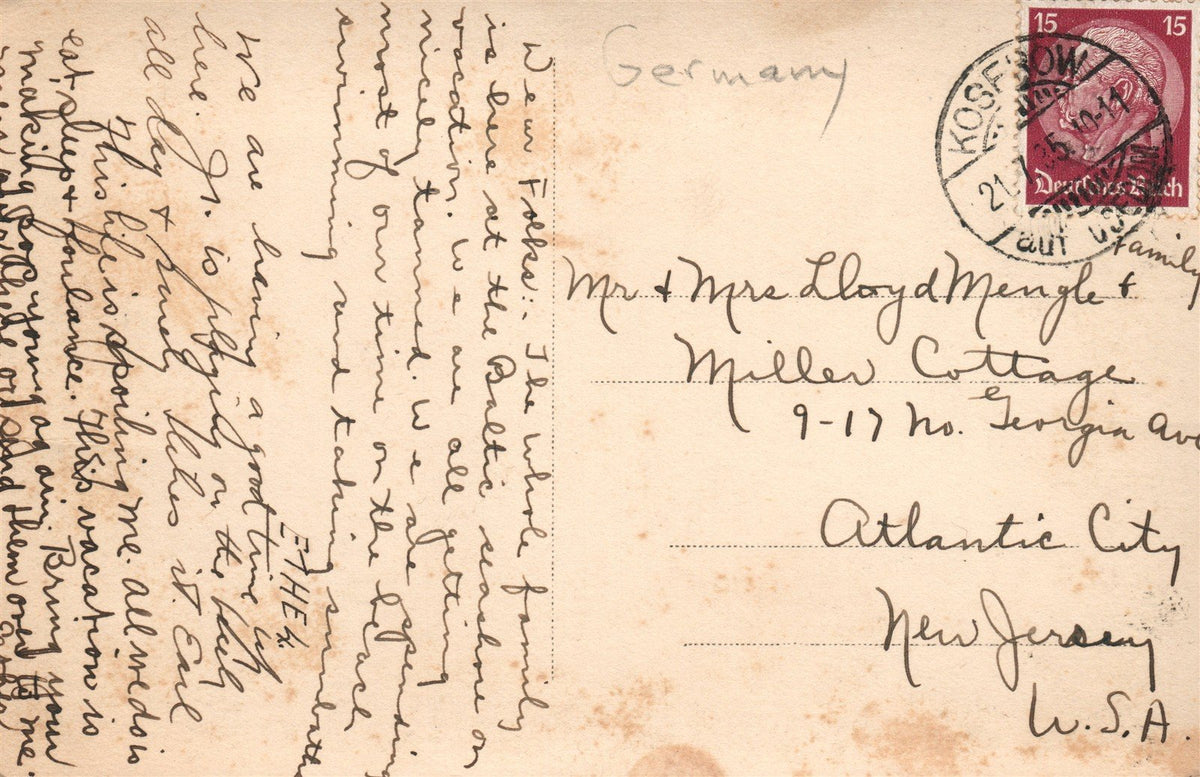 Dear Folks:- The whole family
is here at the Baltic seashore on
vacation. We are all getting
nicely tanned. We are spending
most of our time on the beach
swimming and taking sunbaths
ETHEL.
We are having a good time up
here. Jr. is playing on the
all day & surely likes it. Earl
This life is spoiling me. All we do is
eat, sleep & This vacation is
making pop young again. Bring your
or send them over to me.
Germany
15 15
Deutsches Reich
KOSEROW
21.7.35.10-11
auf USEDOM
Family
Mr & Mrs Lloyd Mengle &
Miller Cottage
9-17 No. Georgia Ave
Atlantic City
New Jersey
U.S.A.